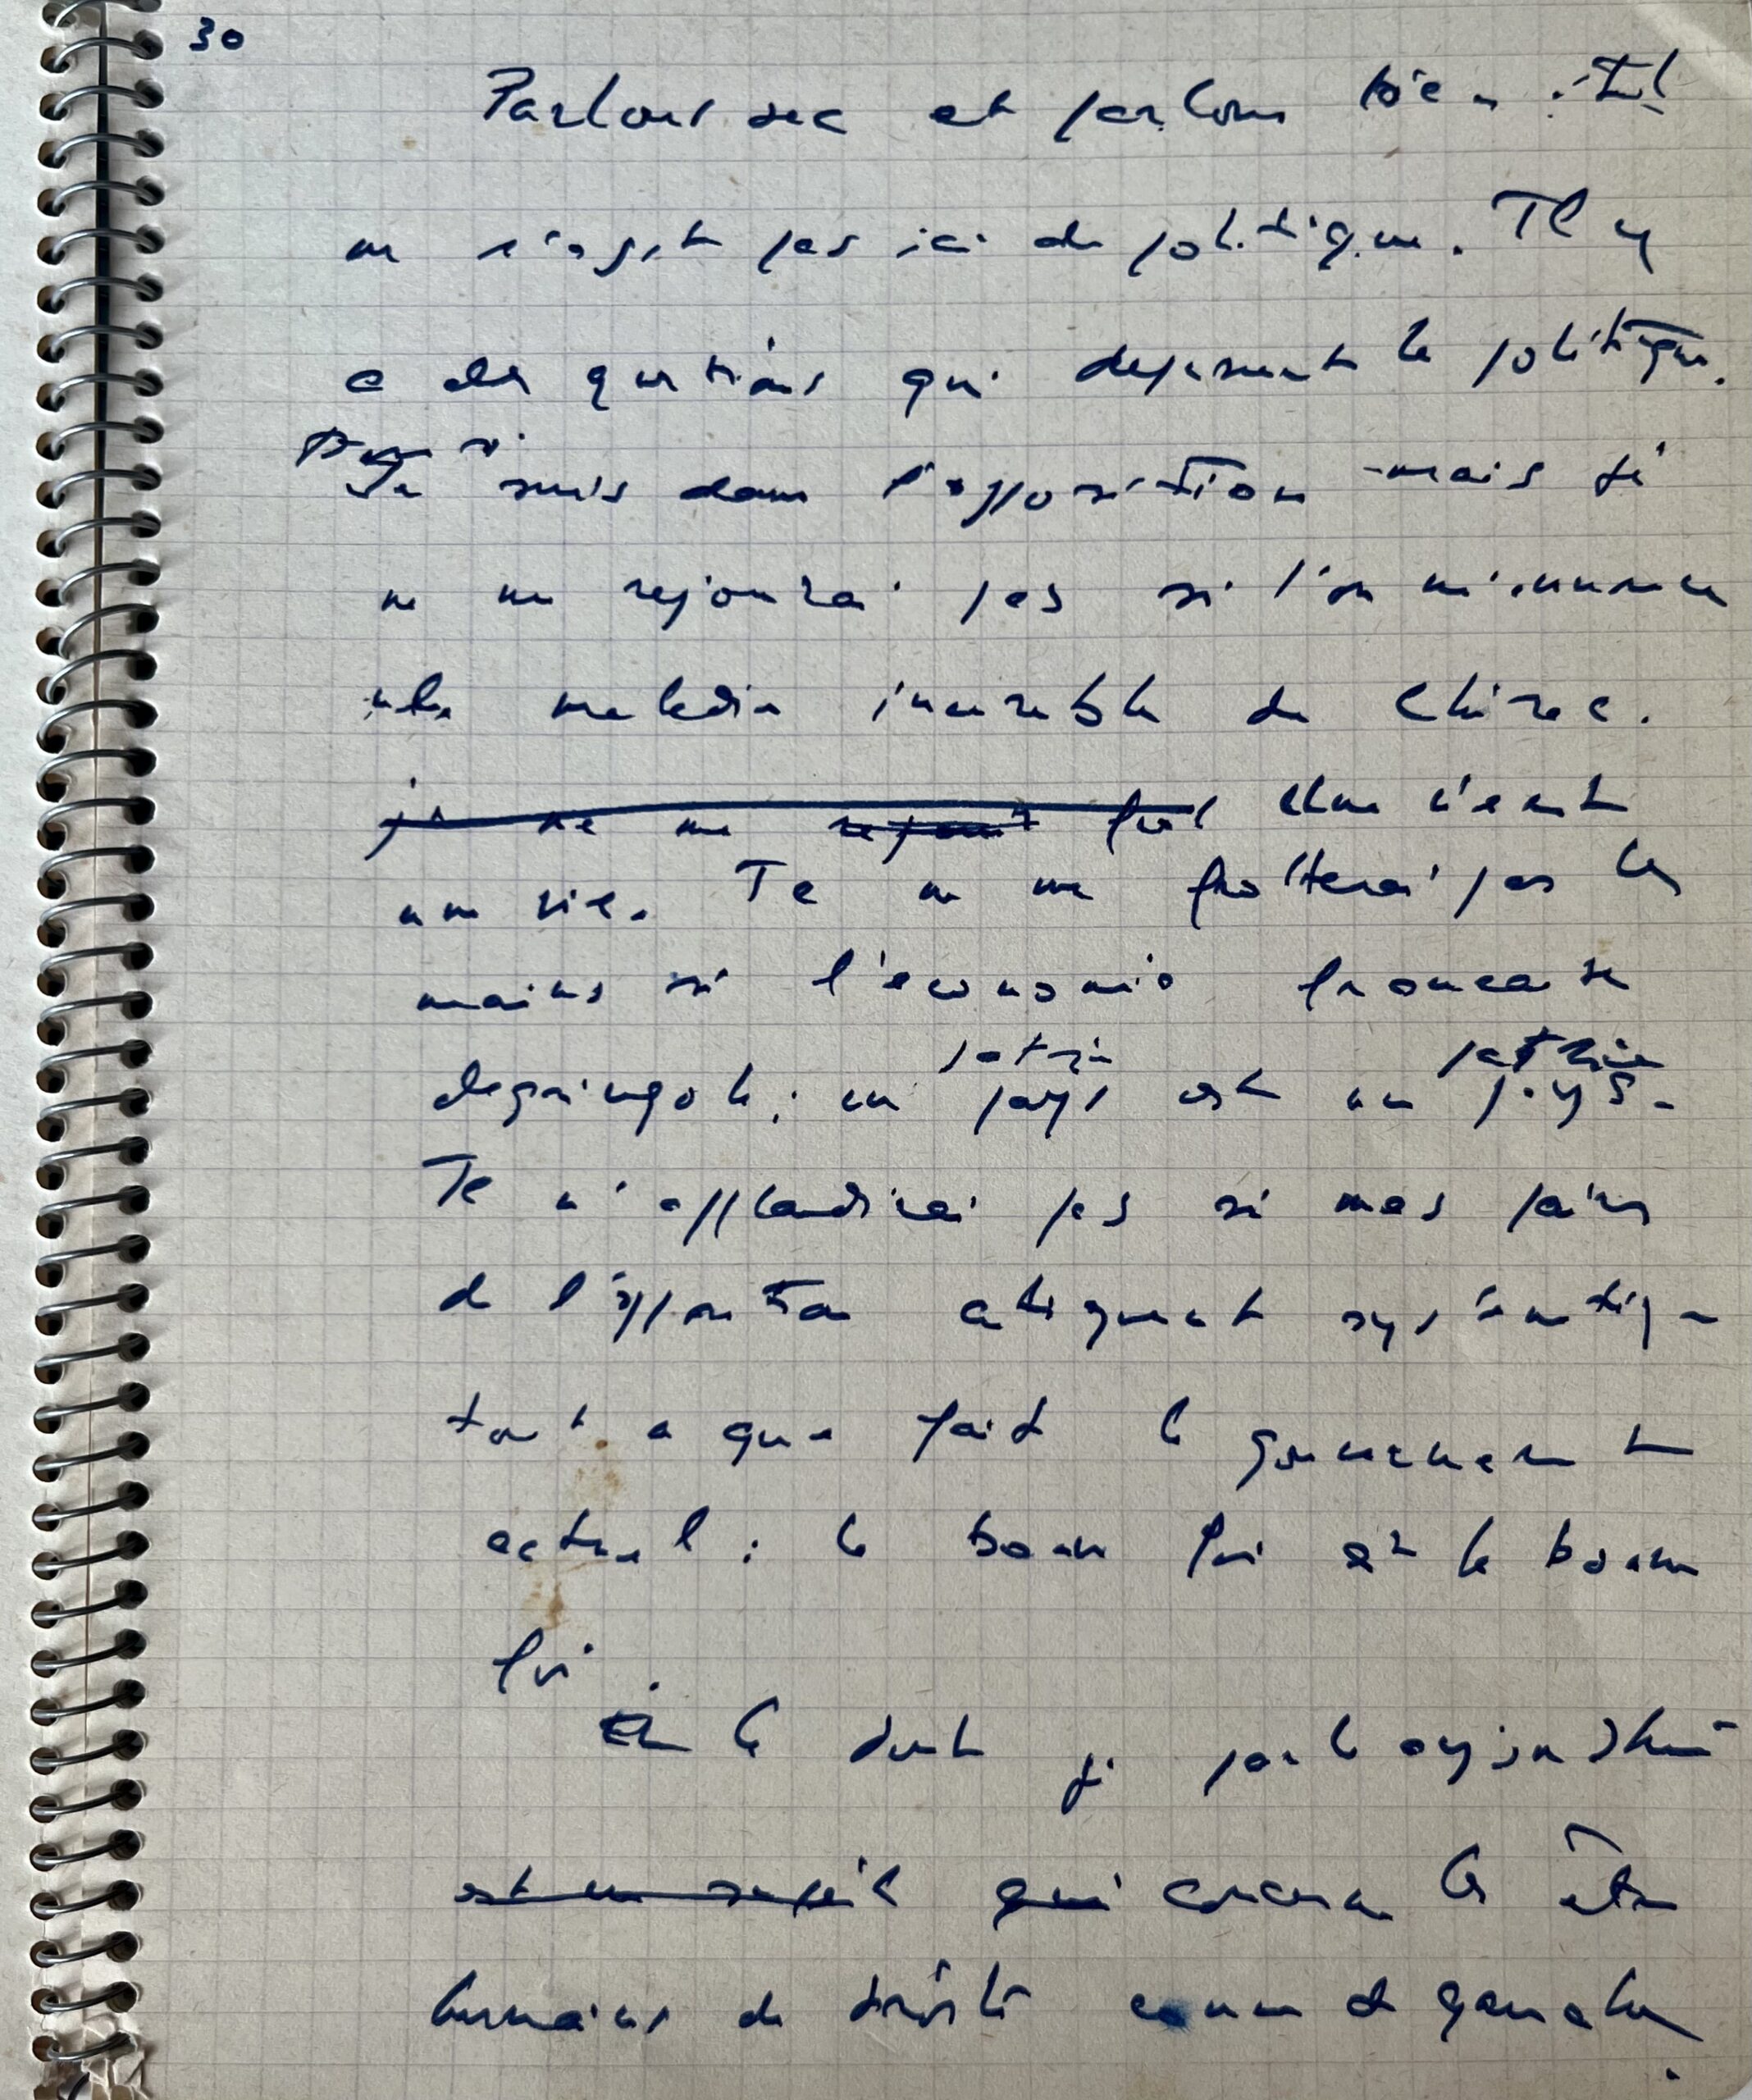 30
Parlons sec et parlons bien : il
ne s'agit pas ici de politique. Il y
a des questions qui dépassent la politique.
Je suis dans l'opposition mais je
ne me rejouirai pas si l'on m'annonce
une maladie incurable de Chirac.
je ne me rejouis pas une vie est
une vie. Je ne me frotterai pas les
mains si l'économie francaise
patrie patrie
degringole ; un pays est un pays.
Je n'applaudirai pas si mes pairs
de l'opposition attaquent systematiq
tout ce que fait le gouvernement
actuel : la bonne foi est la bonne
foi.
Ce dont je parle aujourd'hui
est un sujet qui concerne les êtres
humains de droite comme de gauche.